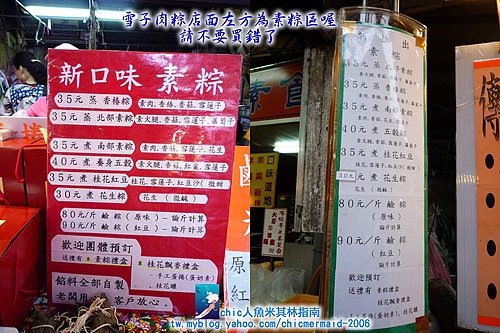 雪子肉粽店面左方為素粽區喔
請不要買錯了
新口味 素粽
35元 蒸 香椿粽 素肉、香椿、香菇、雪蓮子
35元 蒸 北部素粽 素火腿、香菇、雪蓮子、蘿蔔干
35元 煮 南部素粽 素肉、香菇、雪蓮子、花生
40元 煮 養身五穀
35元 煮 桂花紅豆 桂花、雪蓮子、紅豆沙(微甜)
30元 煮 花生粽 花生(微鹹)
80元/斤 鹼粽 (原味)-論斤計算
90元/斤 鹼粽 (紅豆)-論斤計算
歡迎團體預訂
送禮有 素粽禮盒
桂花飄香禮盒
手工蛋捲(蛋奶素)
、桂花釀
餡料全部自製
老闆用心、客戶放心
素粽
35元 蒸 香椿粽
35元 蒸 北部素粽
素火腿、香菇、雪蓮子、蘿蔔干
35元 煮 南部素粽
40元 煮 五穀粽
35元 煮 桂花紅豆
30元 煮 花生粽
花生(微鹹)
80元/斤 鹼粽
(原味)
論斤計算
90元/斤 鹼粽
(紅豆)
論斤計算
歡迎預訂
送禮有:素粽禮盒
桂花飄香禮盒
手工蛋捲(蛋奶素)
桂花釀
素食
味道地
傳
原
紅
chic人魚米其林指南
tw.myblog.yahoo.com/chicmermaid-2006